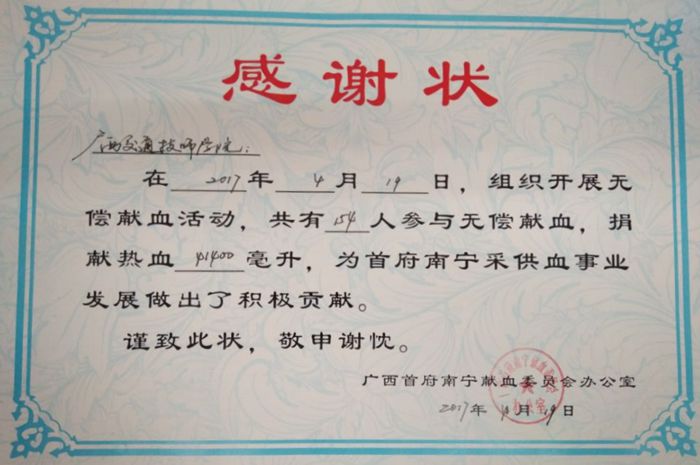 感谢状
广西交通技师学院：
在2017年4月19日，组织开展无
偿献血活动，共有154人参与无偿献血，捐
献热血41400毫升，为首府南宁采供血事业
发展做出了积极贡献。
谨致此状，敬申谢忱。
广西首府南宁献血委员会办公室
2017年4月19日